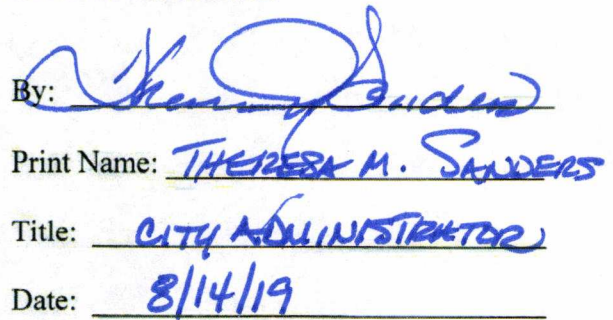 By: Theresa M Sanders
Print Name: THERESA M. SANDERS
Title: CITY ADMINISTRATOR
Date: 8/14/19